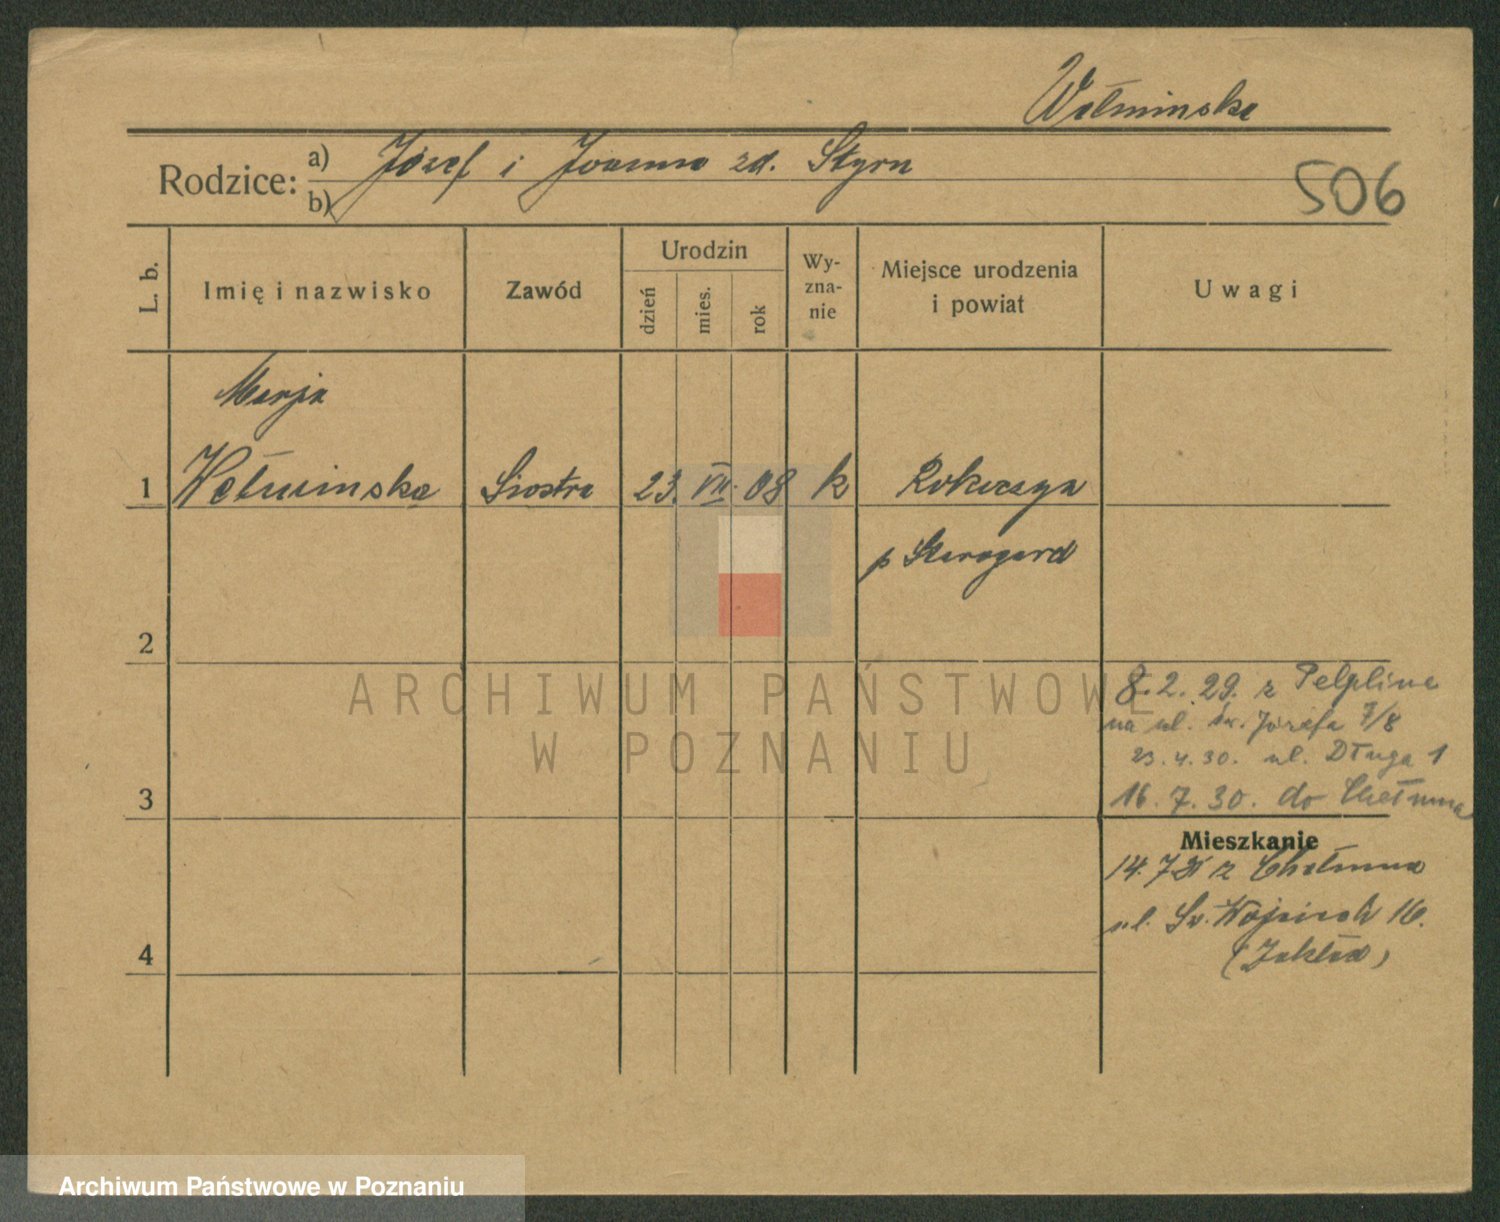 Wałminska
Rodzice:
a) Józef i Joanna zd. Styrn
b)
506
L. b.
Imię i nazwisko
Zawód
Urodzin
dzień
mies.
rok
Wy-
zna-
nie
Miejsce urodzenia
i powiat
Uwagi
Marja
1 Siostra 23. VII. 08 k
p Starogard
2
3
4
8. 2. 29. z Pelplina
na ul. św. Józefa 7/8
23. 4. 30. ul. Długa 1
16. 7. 30. do Chełmna
Mieszkanie
z Chełmna
ul. Św. Wojciech 16.
(Zakład)
ARCHIWUM PAŃSTWOWE
W POZNANIU
Archiwum Państwowe w Poznaniu